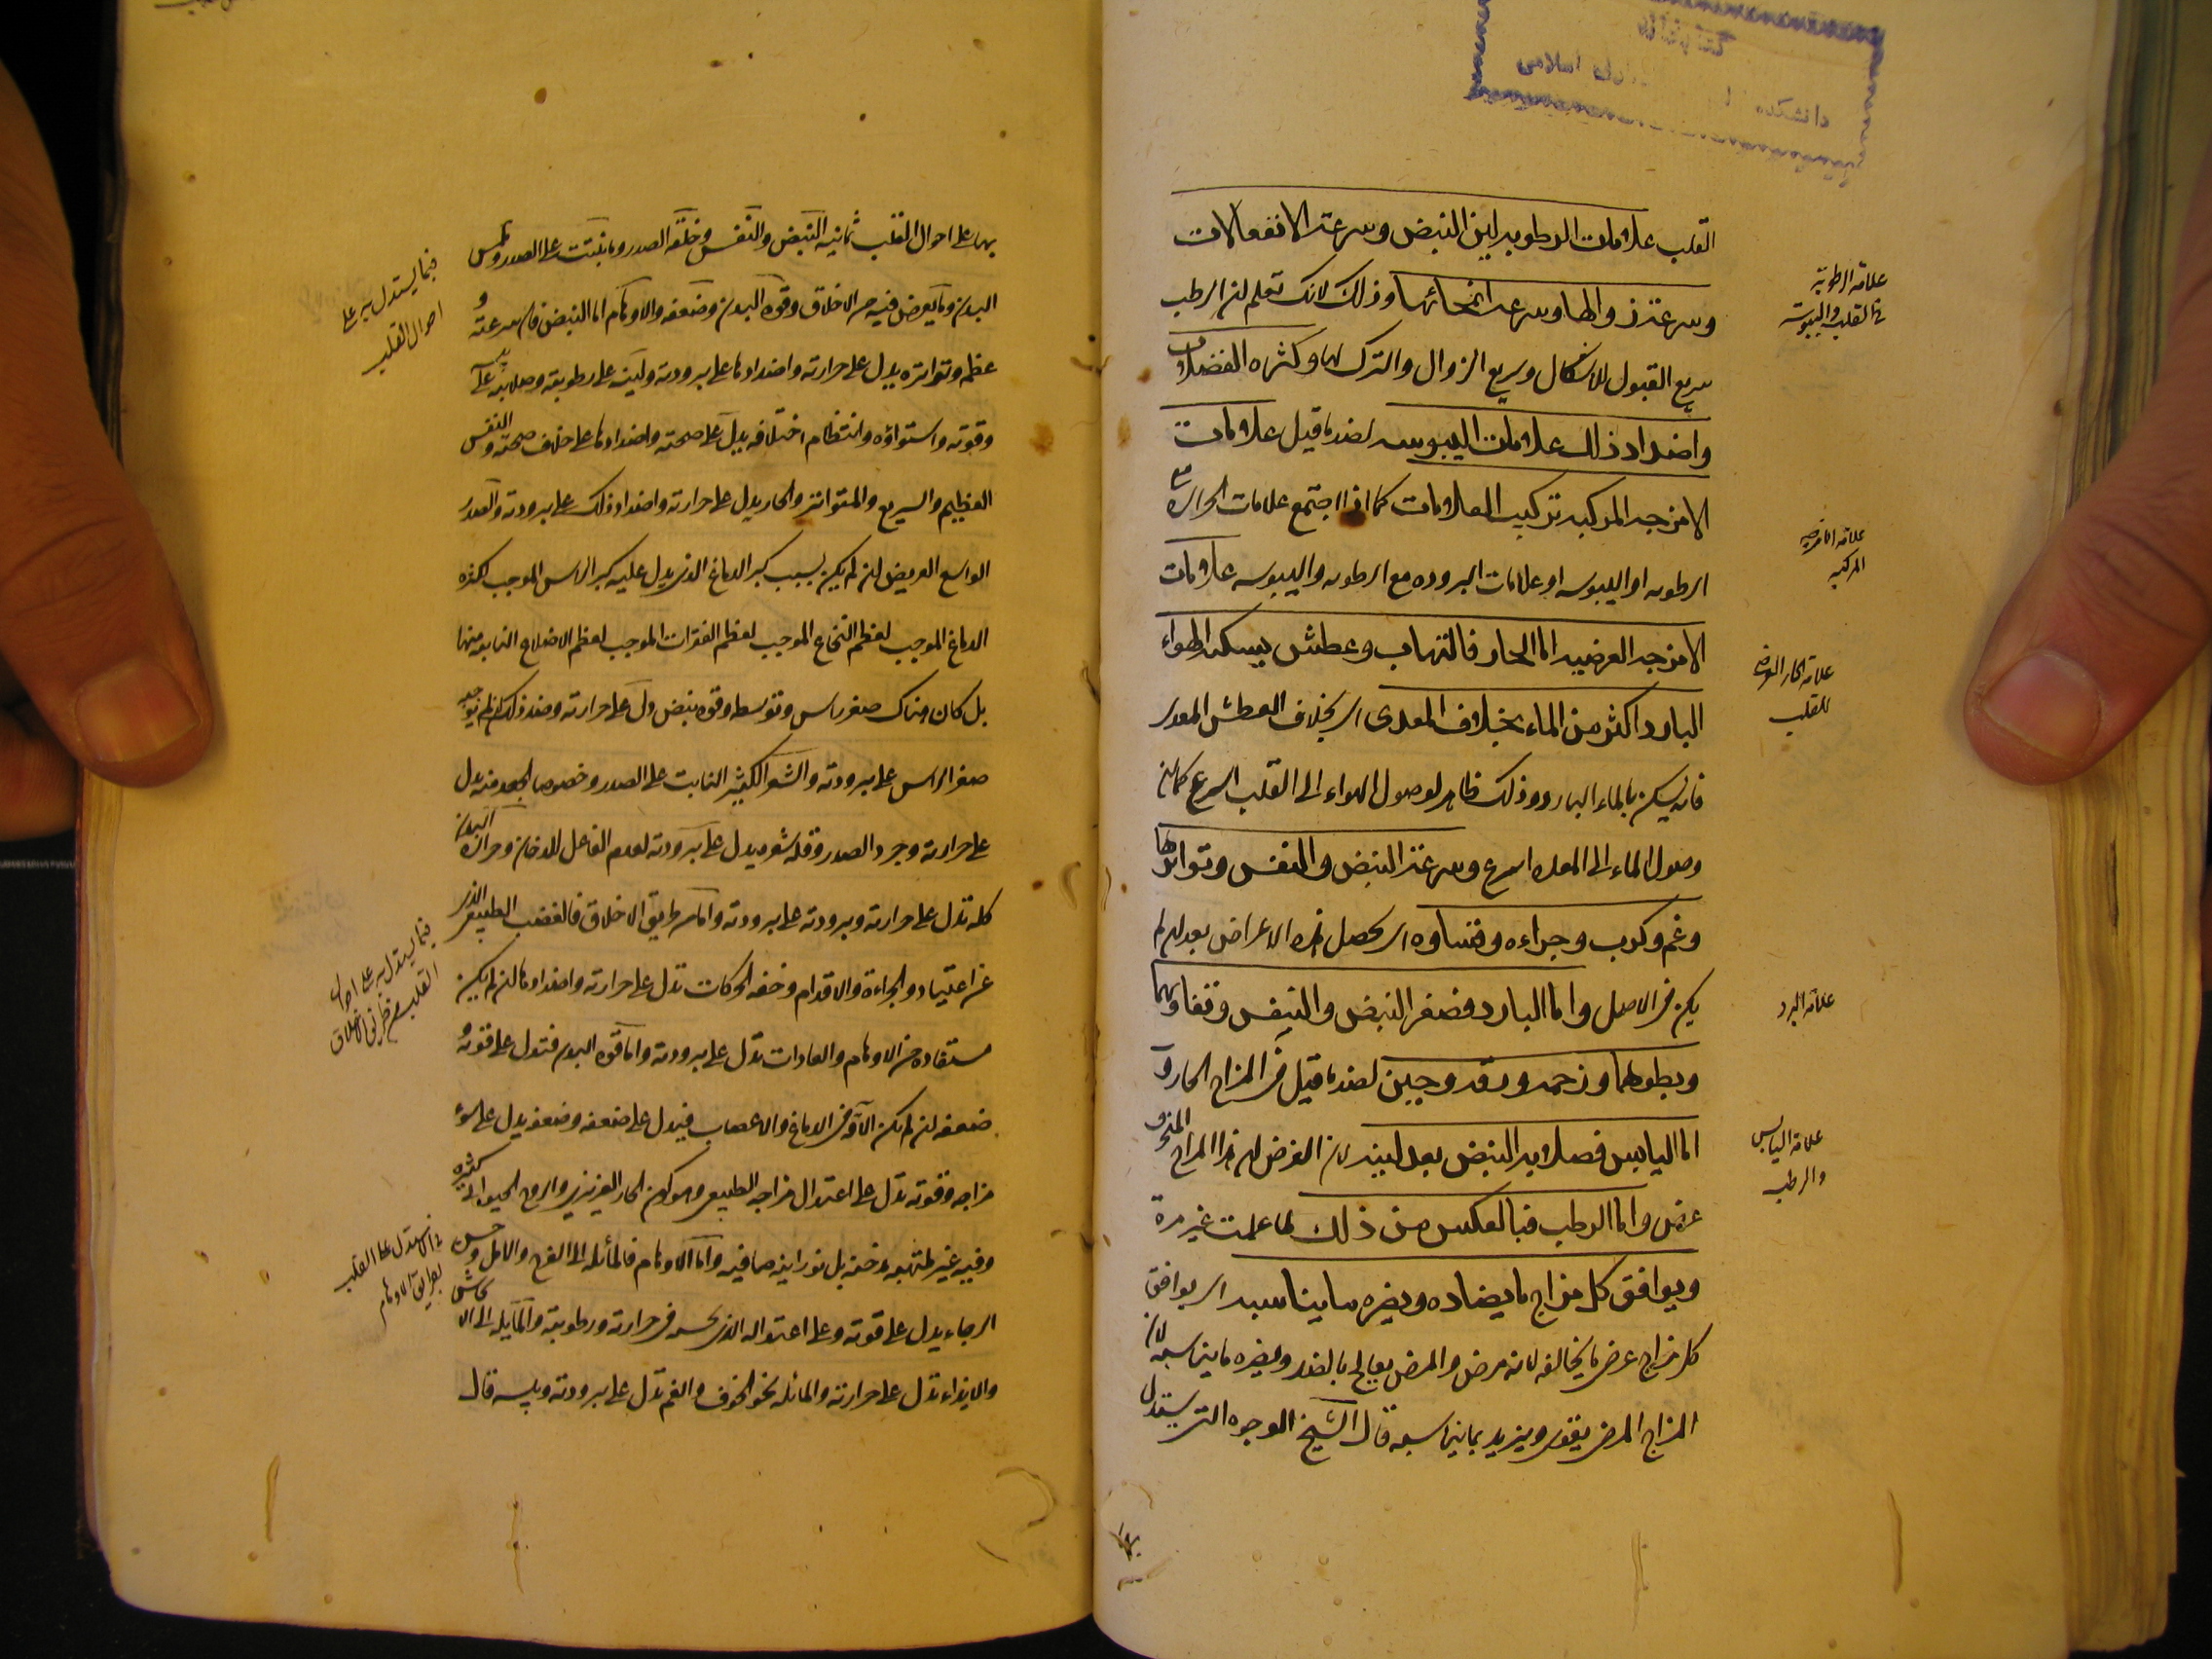 القلب علامات الرطوبه لين النبض وسرعة الانفعالات
وسرعة زوالها وسرعه انمحائها وذلك لانك تعلم ان الرطب
سريع القبول للاشكال وسريع الزوال والترك لها وكثره الفضلات
واضداد ذلك علامات اليبوسه لضد ما قيل علامات
الامزجه المركبه تركيب العلامات كما اذا اجتمع علامات الحراره مع
الرطوبه او اليبوسه او علامات البروده مع الرطوبه واليبوسه علامات
الامزجه العرضيه اما الحار فالتهاب وعطش يسكنه الهواء
البارد اكثر من الماء بخلاف المعدى اى بخلاف العطش المعدى
فانه يسكن بالماء البارد وذلك ظاهر لوصول الهواء الى القلب اسرع كما ان
وصول الماء الى المعده اسرع وسرعة النبض والنفس وتواترهما
وغم وكرب وجراءه وقساوه اى يحصل هذه الاعراض بعد ان لم
يكن فى الاصل واما البارد فصغر النبض والنفس وتفاوتهما
وبطوهما ورحمه ورقه وجبن لضد ما قيل فى المزاج الحار و
اما اليابس فصلابه النبض بعد لينه لان الفرض ان هذا المزاج
عرضى واما الرطب فبالعكس من ذلك لما علمت غير مرة
ويوافق كل مزاج ما يضاده ويضره ما يناسبه اى يوافق
كل مزاج عرضى ما يخالفه لانه مرض والمرض يعالج بالضد ويضره ما يناسبه لان
المزاج المرضى يقوى ويزيد بما يناسبه قال الشيخ الوجوه التى يستدل
علامة الرطوبة
فى القلب واليبوسة
علامة الامزجه
المركبه
علامة الحار العرضى
للقلب
علامة البرد
علامة اليابس
والرطب
بها على احوال القلب ثمانيه النبض والنفس وخلقه الصدر وما ينبت على الصدر وملمس
البدن وما يعرض فيه من الاخلاق وقوه البدن وضعفه والاوهام اما النبض فان سرعته و
عظمه وتواتره يدل على حرارته واضدادها على برودته ولينه على رطوبته وصلابته على يبسه
وقوته واستواؤه وانتظام اختلافه يدل على صحته واضدادها على خلاف صحته والنفس
العظيم والسريع والمتواتر والحار يدل على حرارته واضداد ذلك على برودته والصدر
الواسع العريض ان لم يكن بسبب كبر الدماغ الذى يدل عليه كبر الراس الموجب لكثره
الدماغ الموجب لعظم النخاع الموجب لعظم الفقرات الموجب لعظم الاضلاع النابته منها
بل كان هناك صغر راس وتوسطه وقوه نبض دل على حرارته وضد ذلك ان لم يوجبه
صغر الراس على برودته والشعر الكثير النابت على الصدر وخصوصا الجعد منه يدل
على حرارته وجرد الصدر وقله شعره يدل على برودته لعدم الفاعل للدخان وحراره البدن
كله تدل على حرارته وبرودته على برودته واما من طريق الاخلاق فالغضب الطبيعى الذى
عن اعتياد والجراءة والاقدام وخفه الحركات تدل على حرارته واضدادها ان لم يكن
مستفاده من الاوهام والعادات تدل على برودته واما قوه البدن فتدل على قوته و
ضعفه ان لم يكن الآفه فى الدماغ والاعصاب فيدل على ضعفه وضعفه يدل على سوء
مزاجه وقوته تدل على اعتدال مزاجه الطبيعى وهو كون الحار الغريزى والروح الحيوانى كثيره
وفيه غير ملتهبه مدخنه بل نورانيه صافيه واما الاوهام فالمائله الى الفرح والامل وحسن
الرجاء يدل على قوته وعلى اعتداله الذى بحسبه فى حرارته ورطوبته والمايله الى الايحاش
والايذاء تدل على حرارته والمائله نحو الخوف والغم تدل على برودته ويبسه قال
فيما يستدل به على
احوال القلب
فيما يستدل به على احوال
القلب من طريق الاخلاق
فى الاستدلال على القلب
بطريق الاوهام